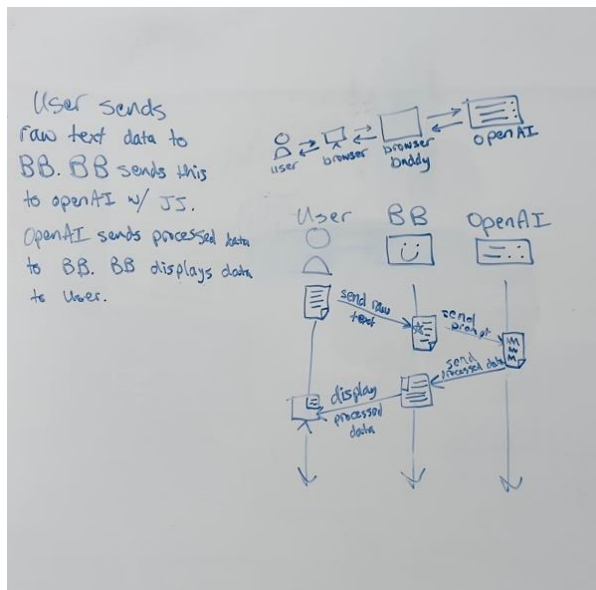 User sends
raw text data to
BB. BB sends this
to openAI w/ JS.
OpenAI sends processed data
to BB. BB displays data
to User.
user
browser
browser
buddy
openAI
User BB OpenAI
send raw
text
send
prompt
send
processed data
display
processed
data